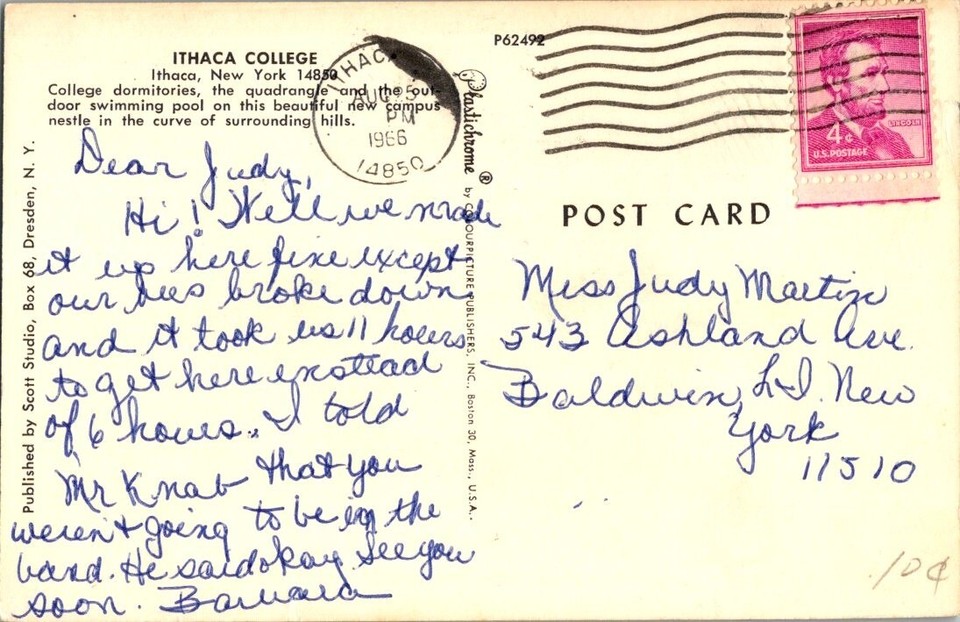 ITHACA COLLEGE
Ithaca, New York 14850
College dormitories, the quadrangle and the out-
door swimming pool on this beautiful new campus
nestle in the curve of surrounding hills.
Dear Judy,
Hi! Well we made
it up here fine except
our bus broke down
and it took us 11 hours
to get here instead
of 6 hours. I told
Mr Knab that you
weren't going to be in the
band. He said okay. See you
soon. Barbara
Published by Scott Studio, Box 68, Dresden, N. Y.
Plastichrome ® by COLOURPICTURE PUBLISHERS, INC., Boston 30, Mass., U.S.A.
ITHACA
AUG 25
PM
1966
14850
P62492
LINCOLN
4¢
U.S. POSTAGE
POST CARD
Miss Judy Martin
543 Ashland Ave.
Baldwin, L.I. New
York
11510
10¢